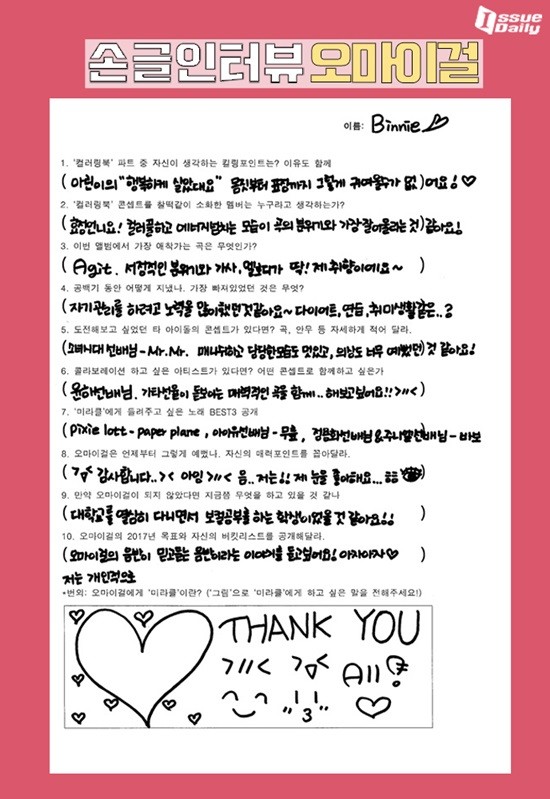 Issue Daily
손글인터뷰 오마이걸
이름: Binnie
1. '컬러링북' 파트 중 자신이 생각하는 킬링포인트는? 이유도 함께
( 아린이의 "행복하게 살았대요" 몸짓부터 표정까지 그렇게 귀여울수가 없)어요! ♡
2. '컬러링북' 콘셉트를 찰떡같이 소화한 멤버는 누구라고 생각하는가?
(효정언니요! 컬러풀하고 에너지넘치는 모습이 곡의 분위기와 가장 잘어울리는것) 같아요!
3. 이번 앨범에서 가장 애착가는 곡은 무엇인가?
( Agit. 서정적인 분위기와 가사, 멜로디가 딱! 제 취향이에요~ )
4. 공백기 동안 어떻게 지냈나. 가장 빠져있었던 것은 무엇?
(자기관리를 하려고 노력을 많이했던것같아요~ 다이어트, 연습, 취미생활같은..? )
5. 도전해보고 싶었던 타 아이돌의 콘셉트가 있다면? 곡, 안무 등 자세하게 적어 달라.
(소녀시대 선배님 - Mr.Mr. 매니쉬하고 당당한모습도 멋있고, 의상도 너무 예뻤던) 것 같아요!
6. 콜라보레이션 하고 싶은 아티스트가 있다면? 어떤 콘셉트로 함께하고 싶은가
( 윤하선배님. 기타선율이 돋보이는 매력적인 곡을 함께.. 해보고싶어요!! >//< )
7. '미라클'에게 들려주고 싶은 노래 BEST3 공개
( Pixie lott - paper plane , 아이유선배님 - 무릎, 정은화선배님&주니엘선배님 - 바보
8. 오마이걸은 언제부터 그렇게 예뻤나. 자신의 매력포인트를 꼽아달라.
( 감사합니다.. >< 아잉 >//< 음.. 저는!! 제 눈을 좋아해요... ㅎㅎ )
9. 만약 오마이걸이 되지 않았다면 지금쯤 무엇을 하고 있을 것 같나
( 대학교를 열심히 다니면서 보컬공부를 하는 학생이었을 것 같아요!! )
10. 오마이걸의 2017년 목표와 자신의 버킷리스트를 공개해달라.
(오마이걸의 음반이 믿고듣는 음반이라는 이야기를 듣고싶어요! 아자아자♡ )
저는 개인적으로
*번외: 오마이걸에게 '미라클'이란? ('그림'으로 '미라클'에게 하고 싶은 말을 전해주세요!)
THANK YOU
All